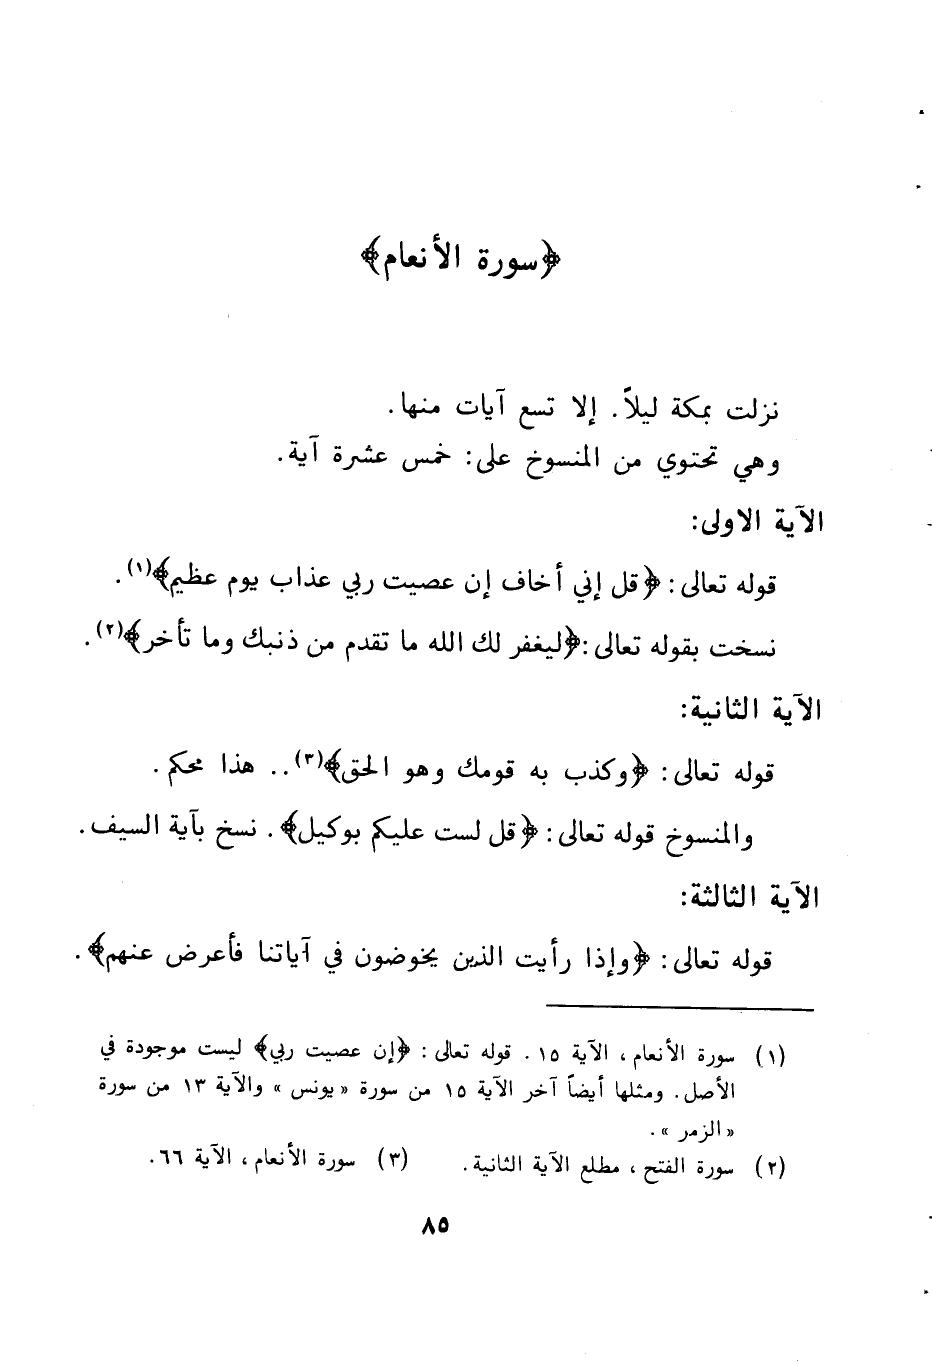 ﴿سورة الأنعام﴾
نزلت بمكة ليلاً. إلا تسع آيات منها.
وهي تحتوي من المنسوخ على: خمس عشرة آية.
الآية الاولى:
قوله تعالى: ﴿قل إني أخاف إن عصيت ربي عذاب يوم عظيم﴾(١).
نسخت بقوله تعالى: ﴿ليغفر لك الله ما تقدم من ذنبك وما تأخر﴾(٢).
الآية الثانية:
قوله تعالى: ﴿وكذب به قومك وهو الحق﴾(٣).. هذا محكم.
والمنسوخ قوله تعالى: ﴿قل لست عليكم بوكيل﴾. نسخ بآية السيف.
الآية الثالثة:
قوله تعالى: ﴿وإذا رأيت الذين يخوضون في آياتنا فأعرض عنهم﴾.
(١) سورة الأنعام، الآية ١٥. قوله تعالى: ﴿إن عصيت ربي﴾ ليست موجودة في
الأصل. ومثلها أيضاً آخر الآية ١٥ من سورة «يونس» والآية ١٣ من سورة
«الزمر».
(٢) سورة الفتح، مطلع الآية الثانية. (٣) سورة الأنعام، الآية ٦٦.
٨٥